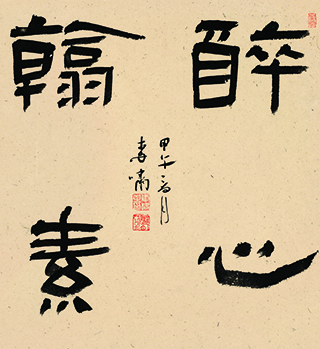 醉心
翰素
甲午春月
春啸